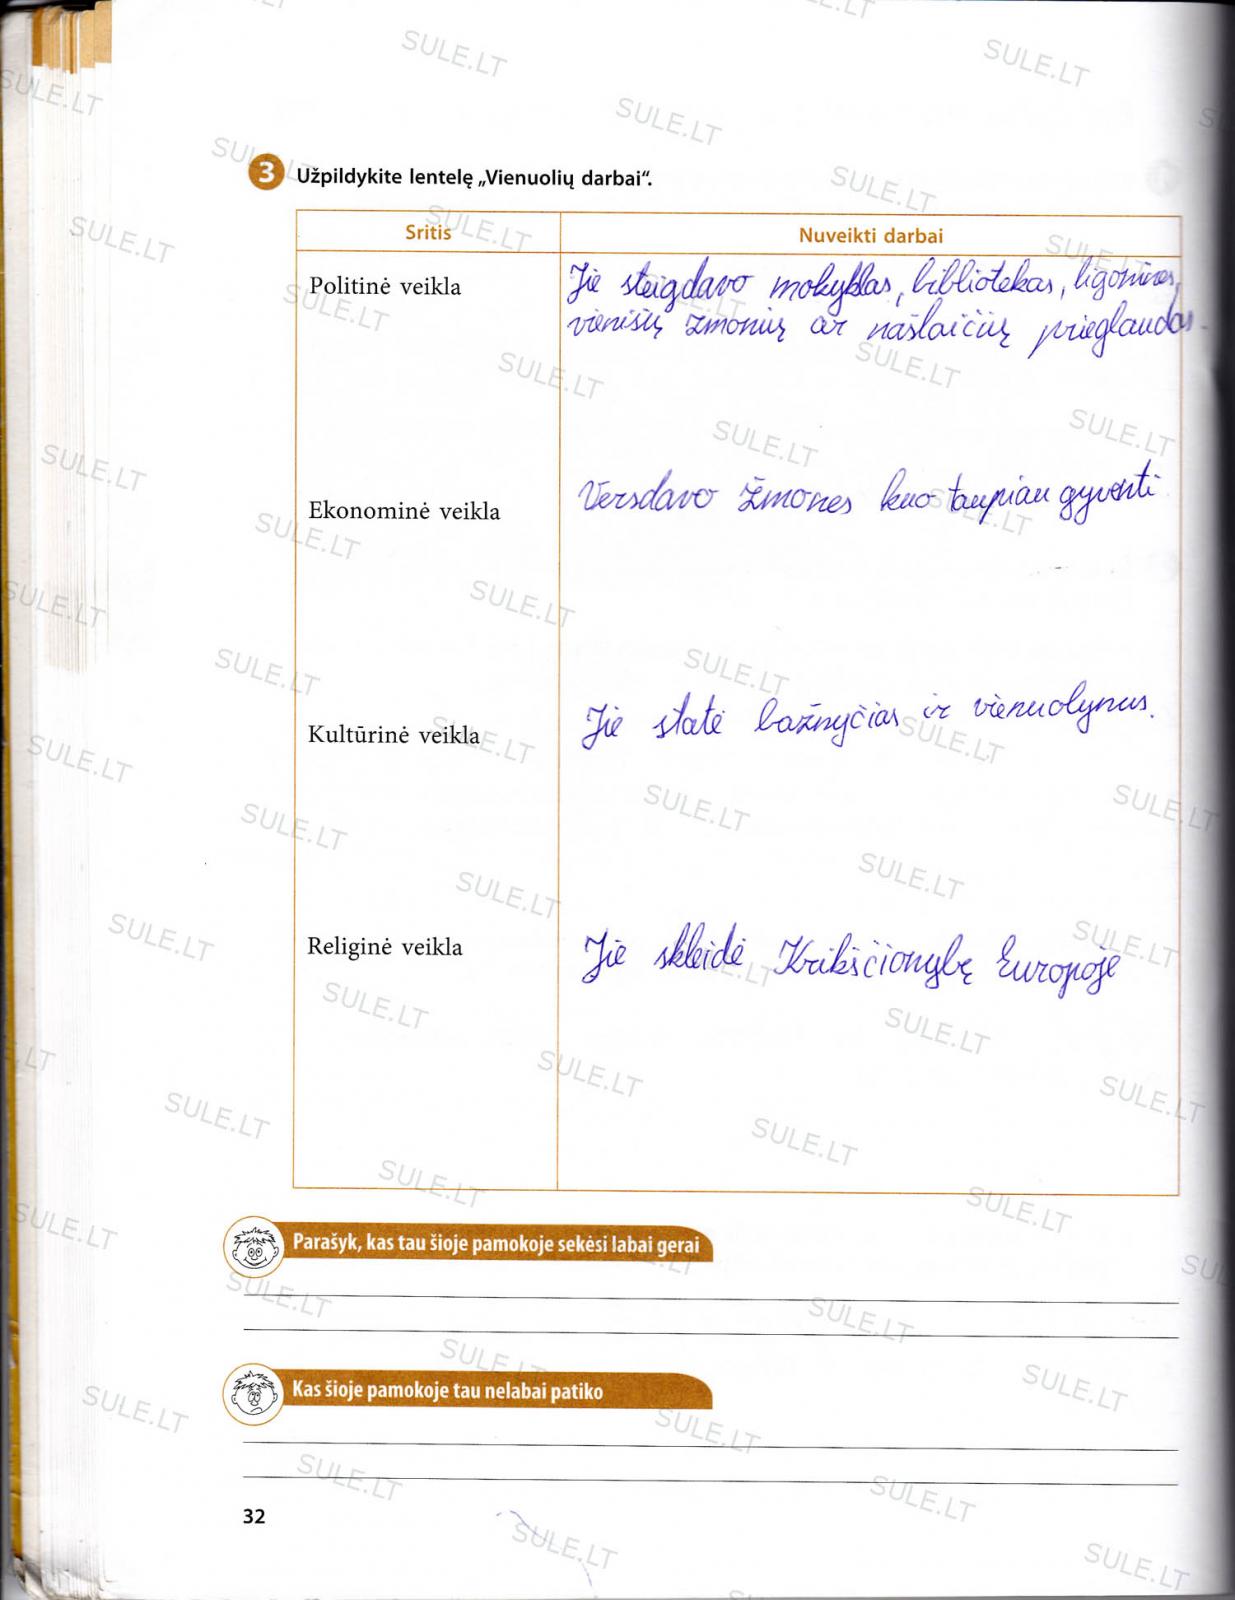 3 Užpildykite lentelę „Vienuolių darbai“.
Sritis
Nuveikti darbai
Politinė veikla
Jie steigdavo mokyklas, bibliotekas, ligonines,
vienišų žmonių ar našlaičių prieglaudas.
Ekonominė veikla
Versdavo žmones kuo taupiau gyventi
Kultūrinė veikla
Jie statė bažnyčias ir vienuolynus.
Religinė veikla
Jie skleidė Krikščionybę Europoje
Parašyk, kas tau šioje pamokoje sekėsi labai gerai
Kas šioje pamokoje tau nelabai patiko
32
SULE.LT